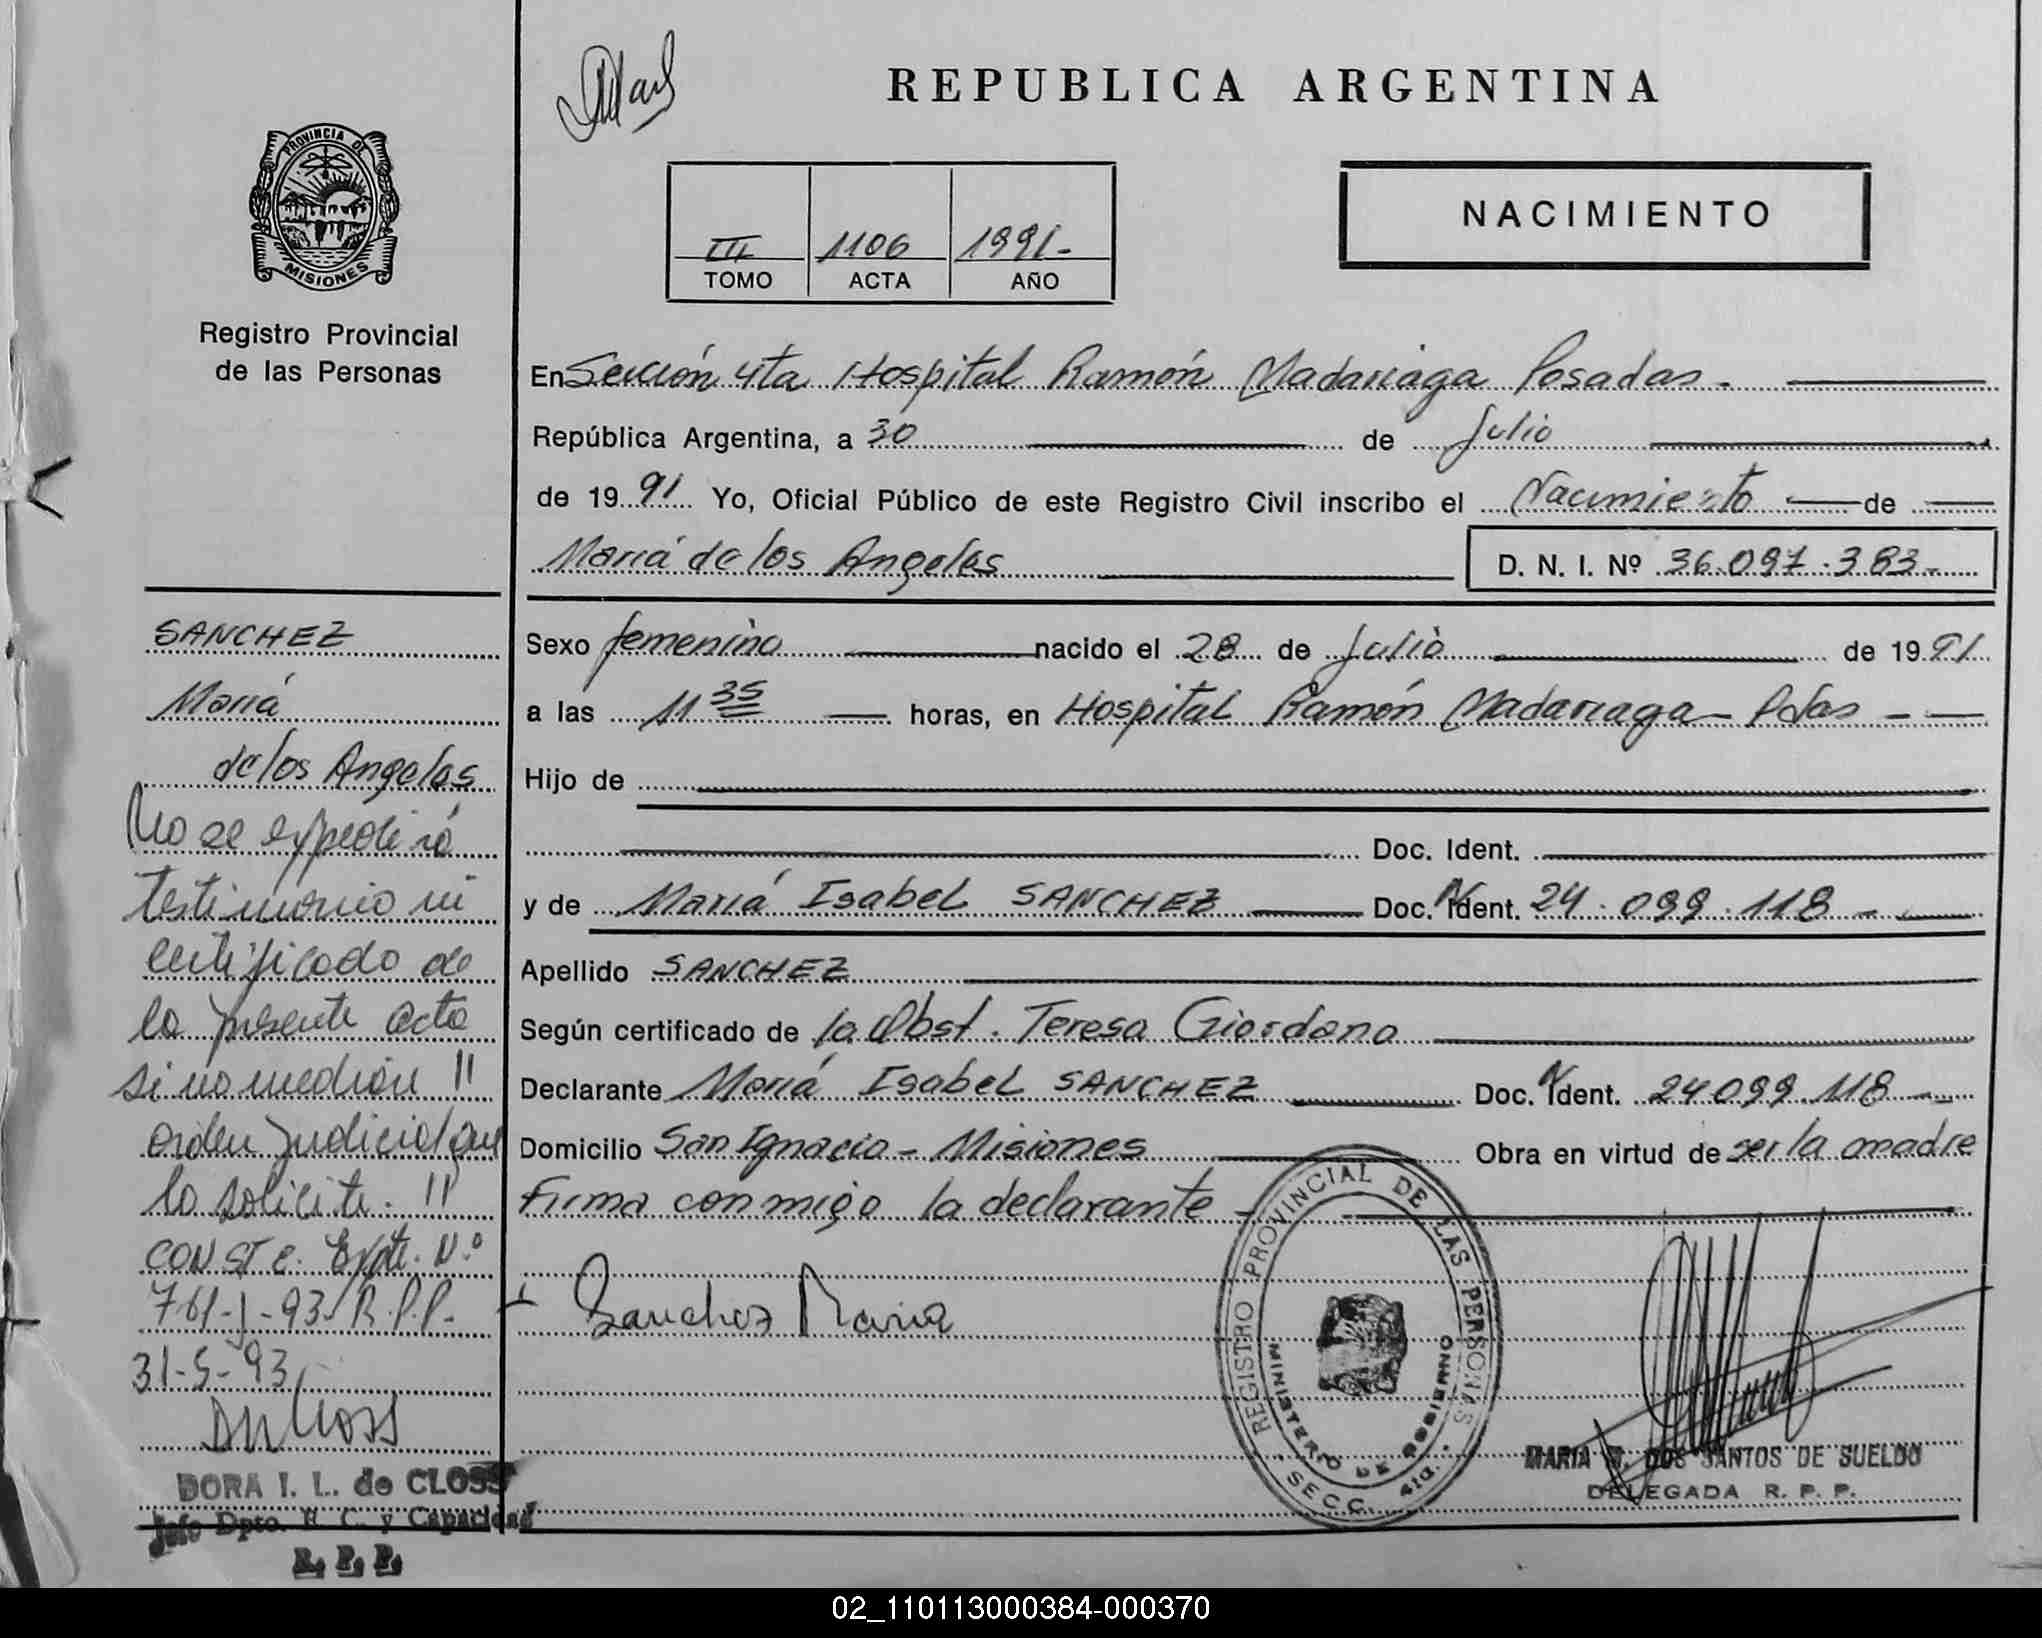 REPUBLICA ARGENTINA
PROVINCIA DE
MISIONES
Registro Provincial
de las Personas
III 1106 1991-
TOMO ACTA AÑO
NACIMIENTO
En Sección 4ta Hospital Ramón Madariaga Posadas.
República Argentina, a 30 de Julio
de 1991 Yo, Oficial Público de este Registro Civil inscribo el Nacimiento de
María de los Angeles D. N. I. Nº 36.097.383-
Sexo femenino nacido el 28 de Julio de 1991
a las 11 35 horas, en Hospital Ramón Madariaga - Pdas -
Hijo de
Doc. Ident.
y de María Isabel SANCHEZ Doc. Ident. 24.099.118 -
Apellido SANCHEZ
Según certificado de la Obst. Teresa Giordano
Declarante María Isabel SANCHEZ Doc. Ident. 24099.118 -
Domicilio San Ignacio - Misiones Obra en virtud de ser la madre
Firma conmigo la declarante -
Sanchez Maria
REGISTRO PROVINCIAL DE LAS PERSONAS
MINISTERIO DE GOBIERNO
SECC. 4ta.
MARIA DOS SANTOS DE SUELDO
DELEGADA R. P. P.
SANCHEZ
María
de los Angeles
No se expedirá
testimonio ni
certificado de
la presente acta
si no mediare
orden judicial que
lo solicite.
CONSTE. Expte. N.º
761-J-93/R.P.P.-
31-5-93
DORA I. L. de CLOSS
Jefe Dpto. E. C. y Capacidad
R. P. P.
02_110113000384-000370